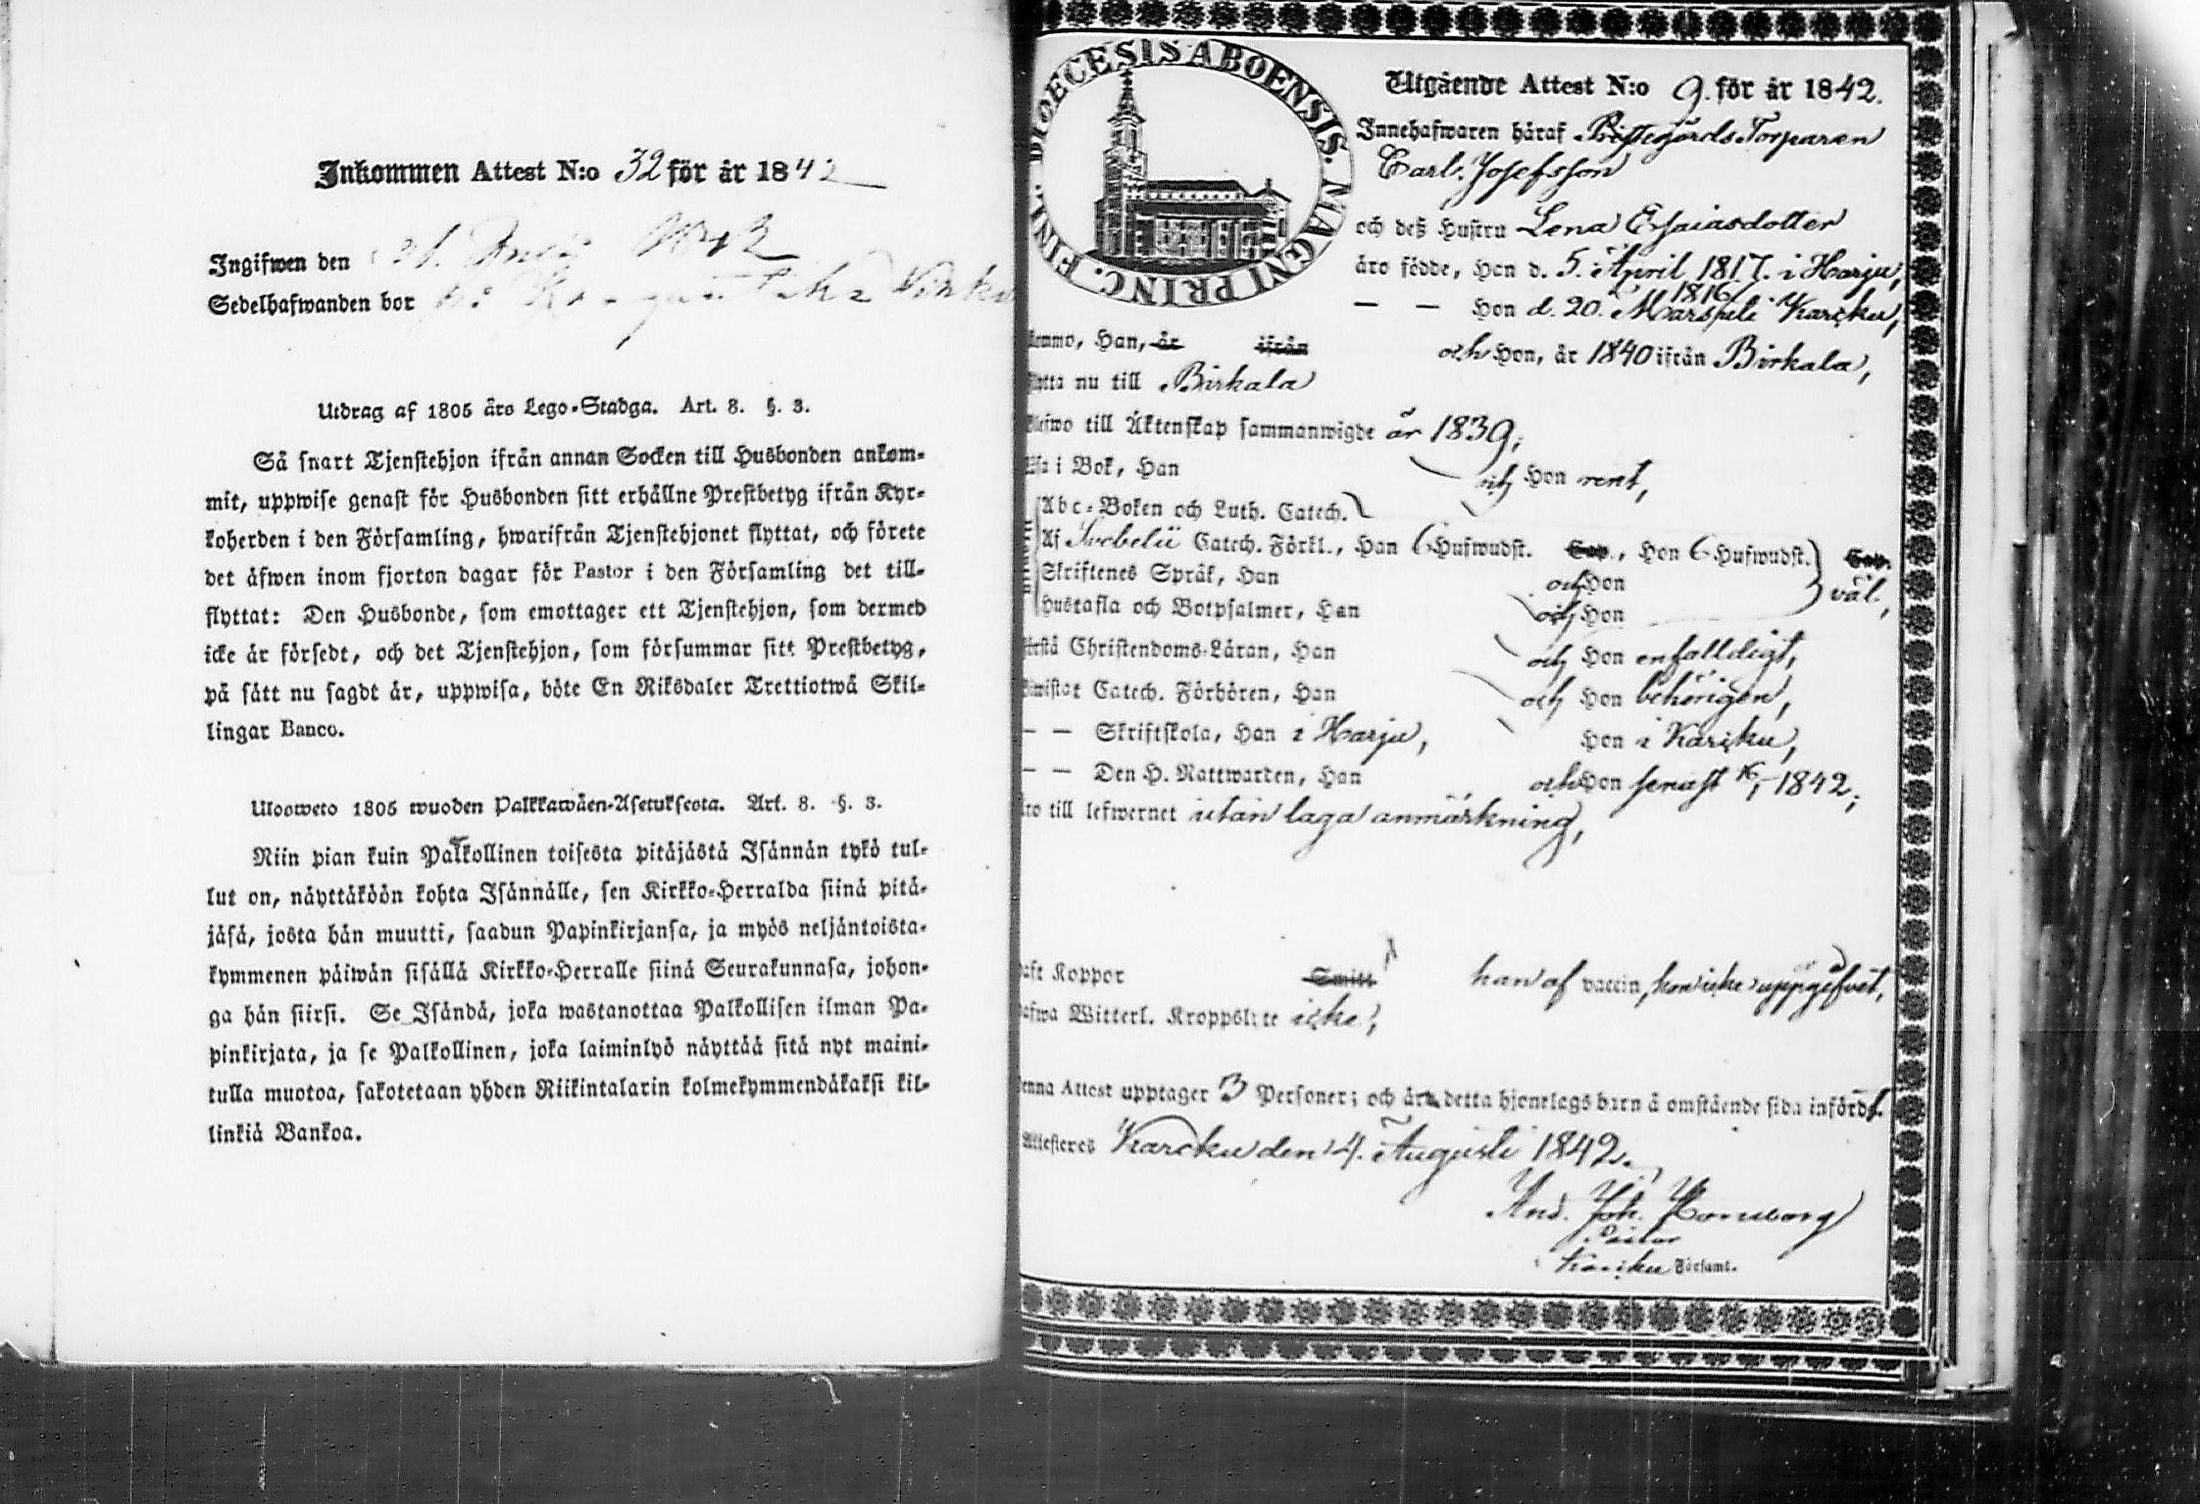 Inkommen Attest N:o 32 för år 1842
Ingifwen den
Sedelhafwanden bor
Utdrag af 1805 års Lego-Stadga. Art. 8. §. 3.
Så snart Tjenstehjon ifrån annan Socken till Husbonden ankom-
mit, uppwise genast för Husbonden sitt erhållne Prestbetyg ifrån Kyr-
koherden i den Församling, hwarifrån Tjenstehjonet flyttat, och förete
det äfwen inom fjorton dagar för Pastor i den Församling det till-
flyttat: Den Husbonde, som emottager ett Tjenstehjon, som dermed
icke är försedt, och det Tjenstehjon, som försummar sitt Prestbetyg,
på sätt nu sagdt är, uppwisa, böte En Riksdaler Trettiotwå Skil-
lingar Banco.
Ulosweto 1805 wuoden Palkkawäen-Asetuksesta. Art. 8. §. 3.
Niin pian kuin Palkollinen toisesta pitäjästä Isännän tykö tul-
lut on, näyttäköön kohta Isännälle, sen Kirkko-Herralda siinä pitä-
jäsä, josta hän muutti, saadun Papinkirjansa, ja myös neljäntoista-
kymmenen päiwän sisällä Kirkko-Herralle siinä Seurakunnasa, johon-
ga hän siirsi. Se Isändä, joka wastanottaa Palkollisen ilman Pa-
pinkirjata, ja se Palkollinen, joka laiminlyö näyttää sitä nyt maini-
tulla muotoa, sakotetaan yhden Riikintalarin kolmekymmendäkaksi kil-
linkiä Bankoa.
DIOECESIS ABOENSIS. MAGNI PRINC. FINL.
Utgående Attest N:o 9. för år 1842.
Innehafwaren häraf Torparen
Carl Josefsson
och deß Hustru Lena Esaiasdotter
äro födde, Han d. 5. April 1817. i Harju,
— — Hon d. 20. Mars 1816 i Karcku,
Han, år ifrån och Hon, år 1840 ifrån Birkala,
nu till Birkala
till Äktenskap sammanwigde år 1839,
i Bok, Han och Hon rent,
Abc-Boken och Luth. Catech.
Af Svebelii Catech. Förkl., Han 6 Hufwudst. Cap., Hon 6 Hufwudst. Cap.
Skriftenes Språk, Han och Hon väl,
Hustafla och Botpsalmer, Han och Hon
Christendoms-Läran, Han och Hon enfalldigt,
Catech. Förhören, Han och Hon behörigen,
— — Skriftskola, Han i Harju, Hon i Karcku,
— — Den H. Nattwarden, Han och Hon senast 1842,
till lefwernet utan laga anmärkning,
Koppor Smitt han af vaccin, hon icke uppgifvet,
Witterl. Kroppslyte icke,
Attest upptager 3 Personer; och är detta hjonelags barn å omstående sida infördt.
Attesteres Karcku den 4. Augusti 1842.
And. Joh. Hornborg
Pastor
Karcku Församl.